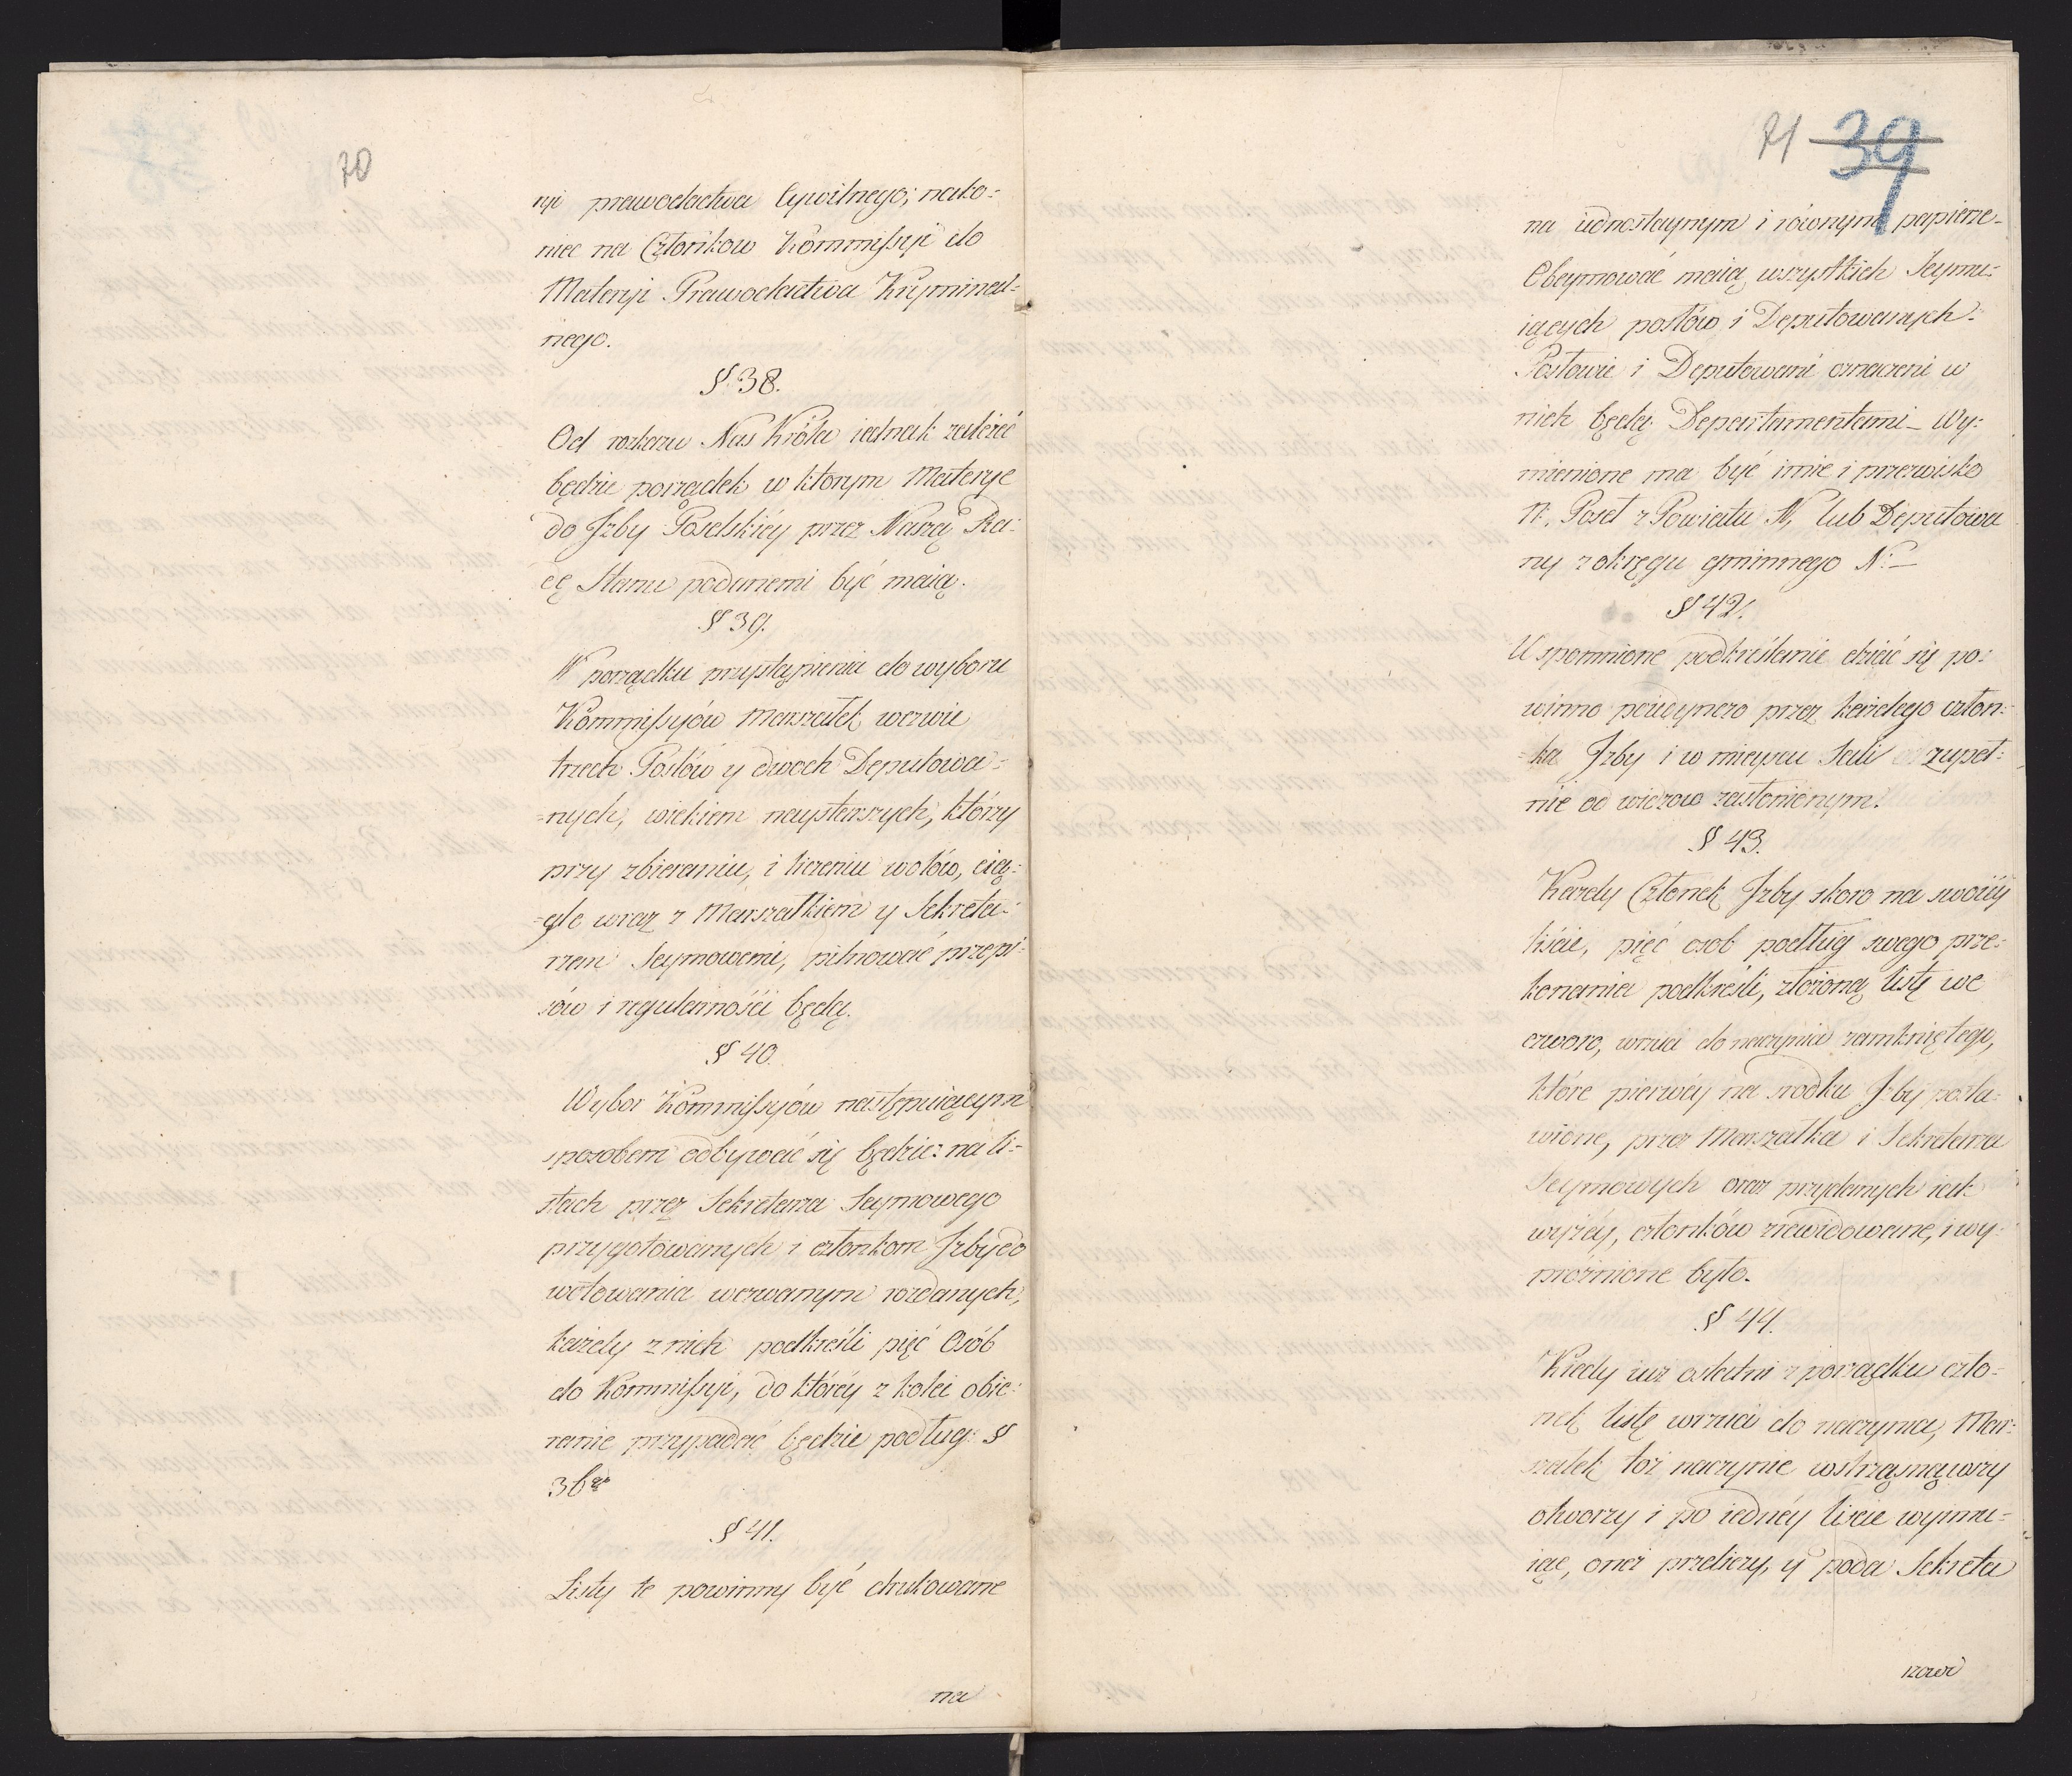 70
ryi prawodactwa Cywilnego; nako=
niec na Członkow Kommissyi do
Materyi Prawodactwa Kryminal=
nego.
§ 38.
Od rozkazu Nas Króla iednak zależeć
będzie porządek w ktorym Materye
do Jzby Poselskiéy przez Naszą Ra=
dę Stanu podanemi być maią.
§ 39.
W porządku przystąpienia do wyboru
Kommissyów Marszałek wezwie
trzech Posłów y dwoch Deputowa=
=nych, wiekiem naystarszych, którzy
przy zbieraniu, i liczeniu wotów, cią=
=gle wraz z Marszałkiem y Sekreta=
rzem Seymowemi, pilnować przepi=
sów i regularnośći będą.
§ 40.
Wybor Kommissyów następuiącym
sposobem odbywać się będzie: na li=
stach przez Sekretarza Seymowego
przygotowanych i członkom Jzby do
wotowania wezwanym rozdanych,
każdy z nich podkreśli pięć Osób
do Kommissyi, do któréy z kolei obie=
ranie przypadać będzie podług: §
36go
§ 41.
Listy te powinny być drukowane
na
71 39
na iednostaynym i równym papierze_
Obeymować maią wszystkich Seymu=
iących posłów i Deputowanych.
Posłowie i Deputowani oznaczeni w
nich będą Departamentami_ Wy=
mienione ma być imie i przezwisko
N. Poseł z Powiatu N, lub Deputowa
ny z okręgu gminnego N._
§ 42.
Wspomnione podkreślenie dziać się po=
winno poiedynczo przez każdego człon=
=ka Jzby i w mieyscu Sali zupeł=
nie od widzow zasłonionym.
§ 43.
Każdy Członek Jzby skoro na swoiéy
liście, pięć osob podług swego prze=
konania podkreśli, złożoną listę we
czworo, wrzuci do naczynia zamkniętego,
które pierwéy na srodku Jzby posta=
wione, przez Marszałka i Sekretarza
Seymowych oraz przydanych iak
wyżéy, członków zrewidowane, i wy=
prożnione było.
§ 44.
Kiedy iuż ostatni z porządku czło=
nek listę wrzuci do naczynia, Mar=
szałek toż naczynie wstrząsnąwszy
otworzy i po iednéy liście wyimu=
iąc, oneż przeliczy, y poda Sekreta
rzowi